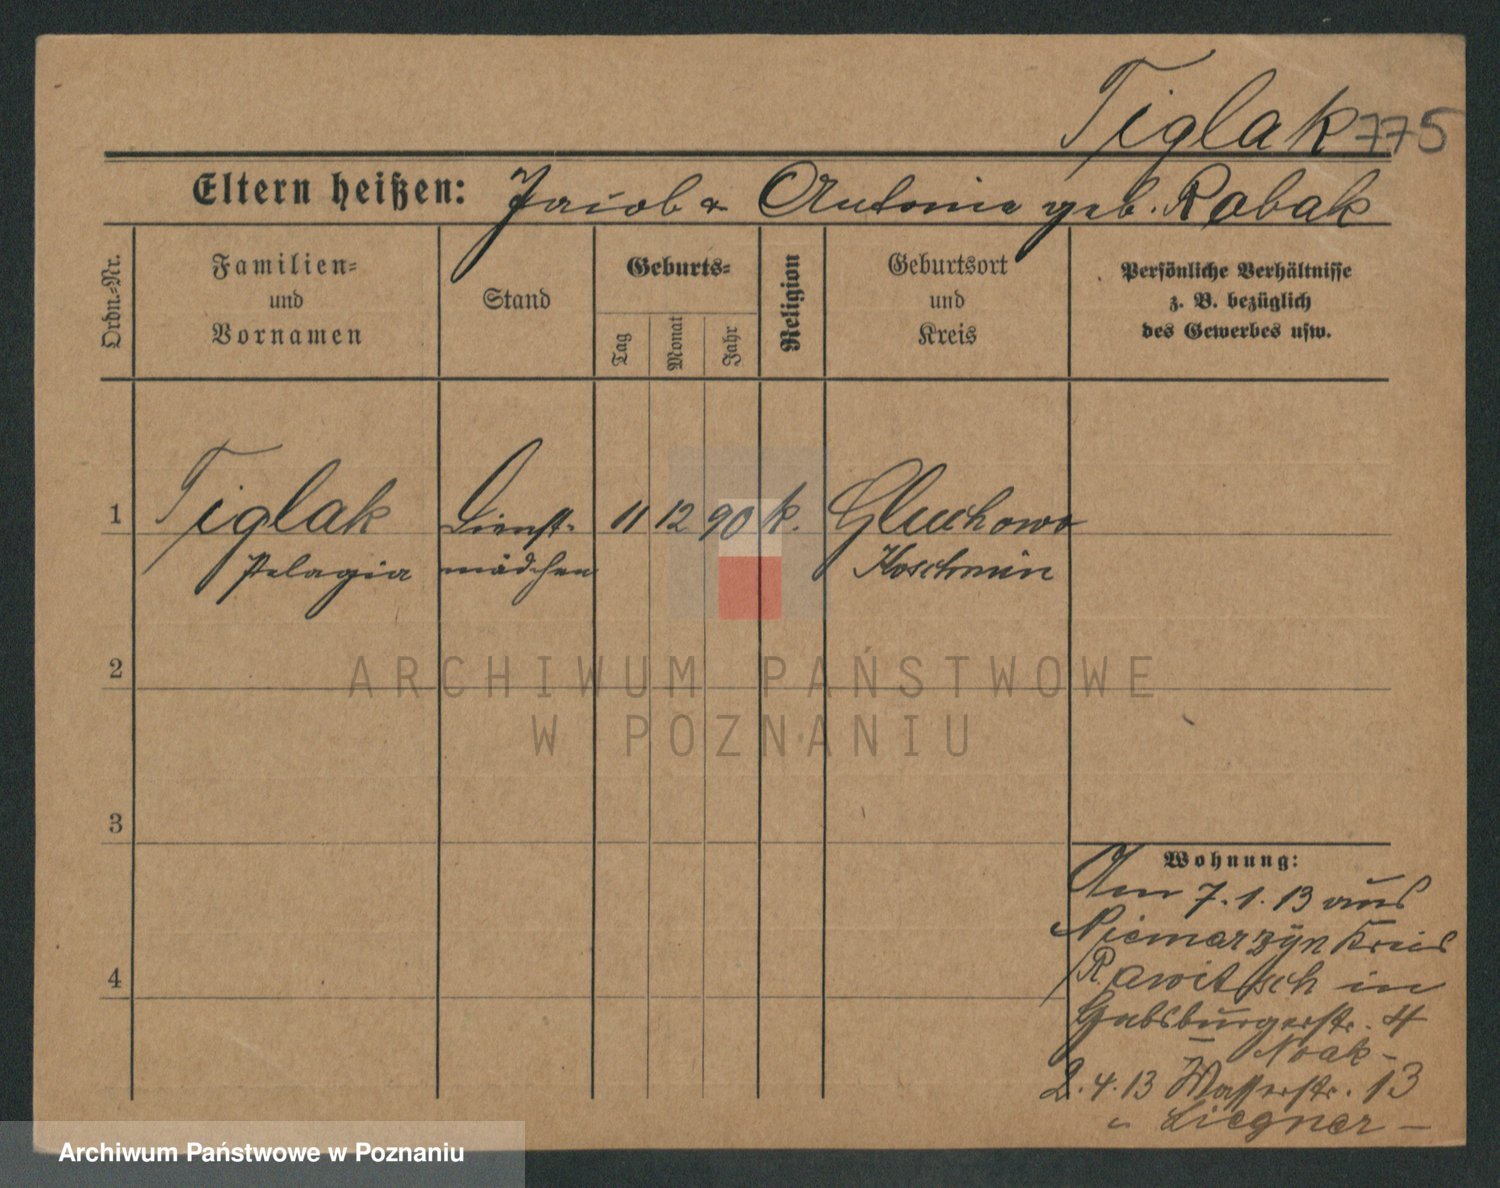 Tiglak 775
Eltern heißen: Jacob & Antonie geb. Rabak
Ordn.-Nr.
Familien-
und
Vornamen
Stand
Geburts-
Tag
Monat
Jahr
Religion
Geburtsort
und
Kreis
Persönliche Verhältnisse
z. B. bezüglich
des Gewerbes usw.
1 Tiglak Dienst- 11 12 90 k. Gluchowo
Pelagia mädchen Koschmin
2
3
4
Wohnung:
Am 7.1.13 aus
Niemarzyn Kreis
Rawitsch in
Habsburgerstr. 4
- Noak -
2.4.13 Wasserstr. 13
Liegner -
ARCHIWUM PAŃSTWOWE
W POZNANIU
Archiwum Państwowe w Poznaniu